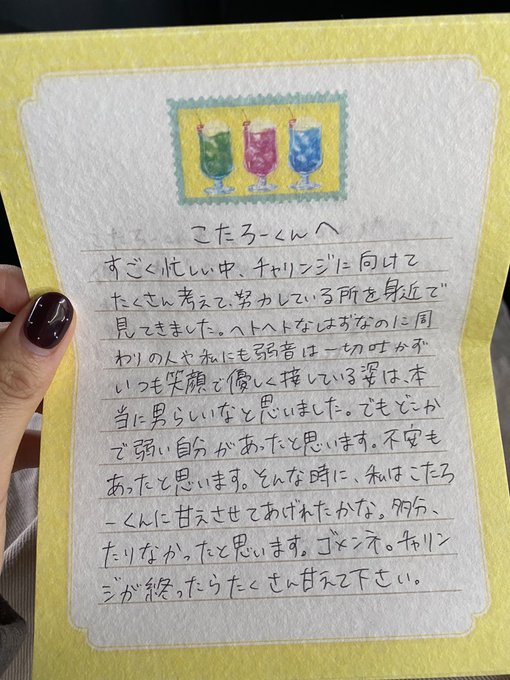 こたろーくんへ
すごく忙しい中、チャリンジに向けて
たくさん考えて、努力している所を身近で
見てきました。ヘトヘトなはずなのに周
わりの人や私にも弱音は一切吐かず
いつも笑顔で優しく接している姿は、本
当に男らしいなと思いました。でもどこか
で弱い自分があったと思います。不安も
あったと思います。そんな時に、私はこたろ
ーくんに甘えさせてあげれたかな。多分、
たりなかったと思います。ゴメンネ。チャリン
ジが終ったらたくさん甘えて下さい。